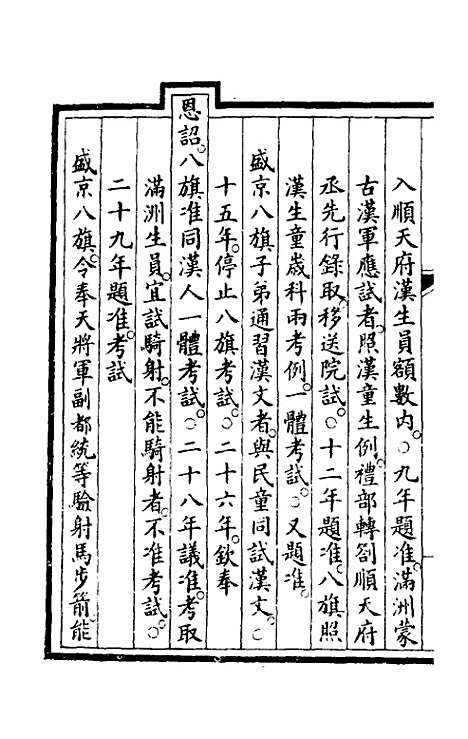 入順天府漢生員額數內。○九年題准。滿洲蒙
古漢軍應試者。照漢童生例。禮部轉劄順天府
丞先行錄取。移送院試。○十二年題准。八旗照
漢生童歲科兩考例。一體考試。○又題准。
盛京八旗子弟通習漢文者。與民童同試漢文。○
十五年。停止八旗考試。○二十六年。欽奉
恩詔。八旗准同漢人一體考試。○二十八年議准。考取
滿洲生員。宜試騎射。不能騎射者。不准考試。○
二十九年題准。考試
盛京八旗。令奉天將軍副都統等驗射馬步箭。能